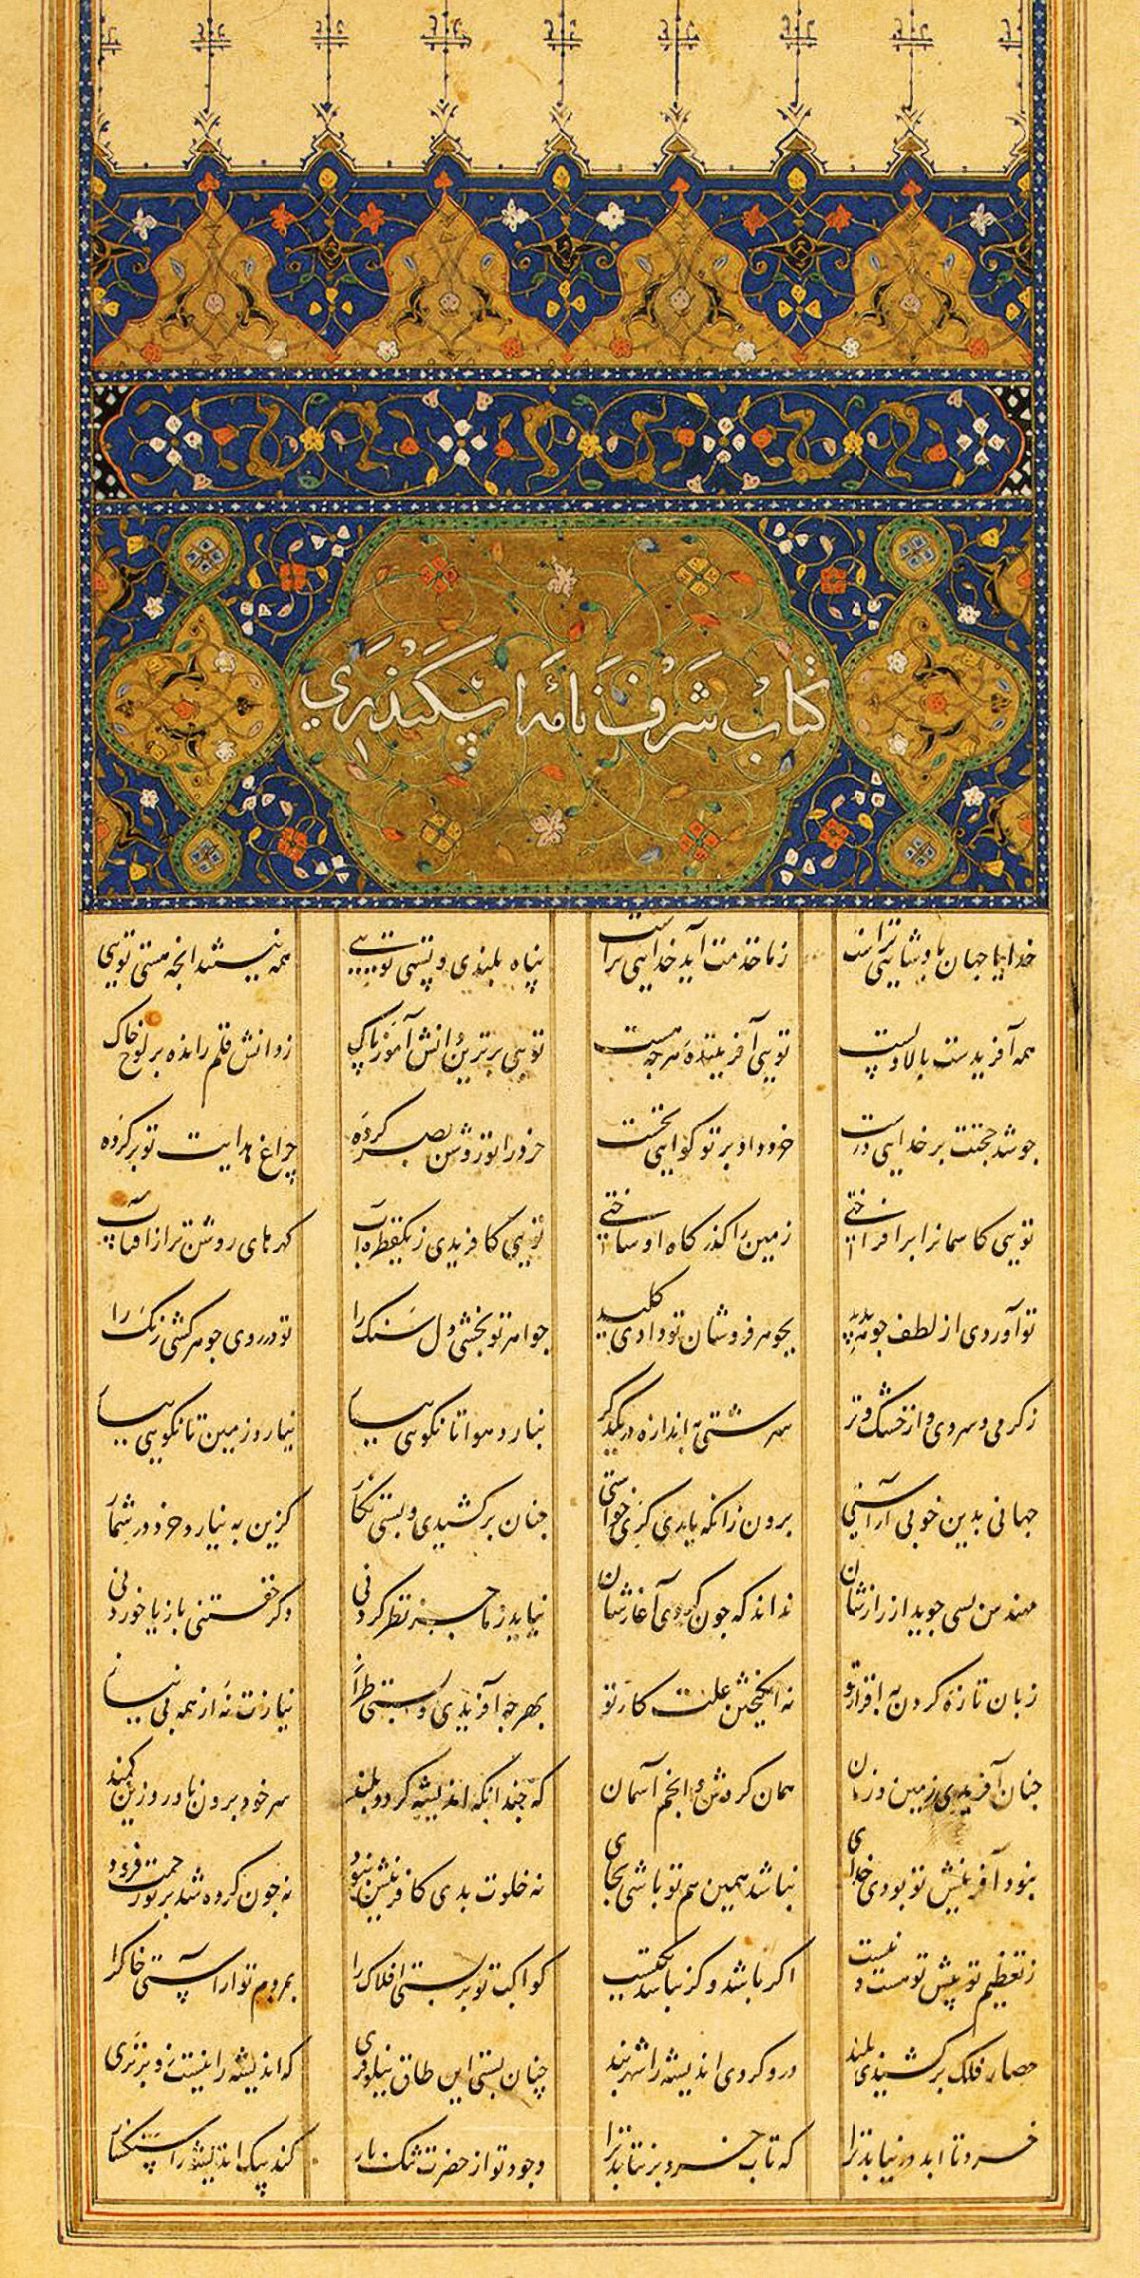 کتاب شرف نامهٔ اسکندری
خدایا جهان پادشایی تراست ز ما خدمت آید خدایی تراست پناه بلندی و پستی تویی همه نیستند انچه هستی تویی
همه آفریدست بالا و پست تویی آفریننده هرچه هست تویی برترین دانش آموز پاک ز دانش قلم رانده بر لوح خاک
چو شد حجتت بر خدایی درست خرد داد بر تو کوایی نخست خرد را تو روشن بصر کرده چراغ هدایت تو بر کرده
تویی کاسمانرا برافراختی زمین را کذرکاه او ساختی تویی کافریدی ز یکقطره آب کهرهای روشن تر از افتاب
تو آوردی از لطف جوهر پدید بجوهر فروشان تو دادی کلید جواهر تو بخشی دل سنک را تو در روی جوهر کشی رنک را
ز کرمی و سردی و از خشک و تر سرشتی به اندازه در یکدکر نبارد هوا تا نکویی ببار نیارد زمین تا نکویی بیار
جهانی بدین خوبی آراستی برون زانکه یاری کری خواستی چنان برکشیدی و بستی نکار کزین به نیارد خرد در شمار
مهندس بسی جوید از رازشان نداند که چون کردی آغازشان نیاید ز ما جز نظر کردنی وکر خفتنی باز یا خوردنی
زبان تازه کردن به اقرار تو نه انکیختن علت کار تو بهرچه آفریدی و بستی طراز نیازت نه از همه بی نیاز
چنان آفریدی زمین و زمان همان کردش و انجم آسمان که چندانکه اندیشه کردد بلند سر خود برون نارد زین کمند
نبود آفرینش تو بودی خدای نباشد همین هم تو باشی بجای نه خلوت بدی کافرینش نبود نه چون کرده شد بر تو زحمت فزود
ز تعظیم تو پیش تو هست و نیست اکر باشد و کر نباشد یکیست کواکب تو بربستی افلاک را بمردم تو اراستی خاک را
حصار فلک برکشیدی بلند درو کردی اندیشه را شهربند چنان بستی این طاق نیلوفری که اندیشه را نیست زو برتری
خرد تا ابد در نیابد ترا که تاب خرد بر نتابد ترا وجود تو از حضرت تنک بار کند پیک اندیشه را سنکسار